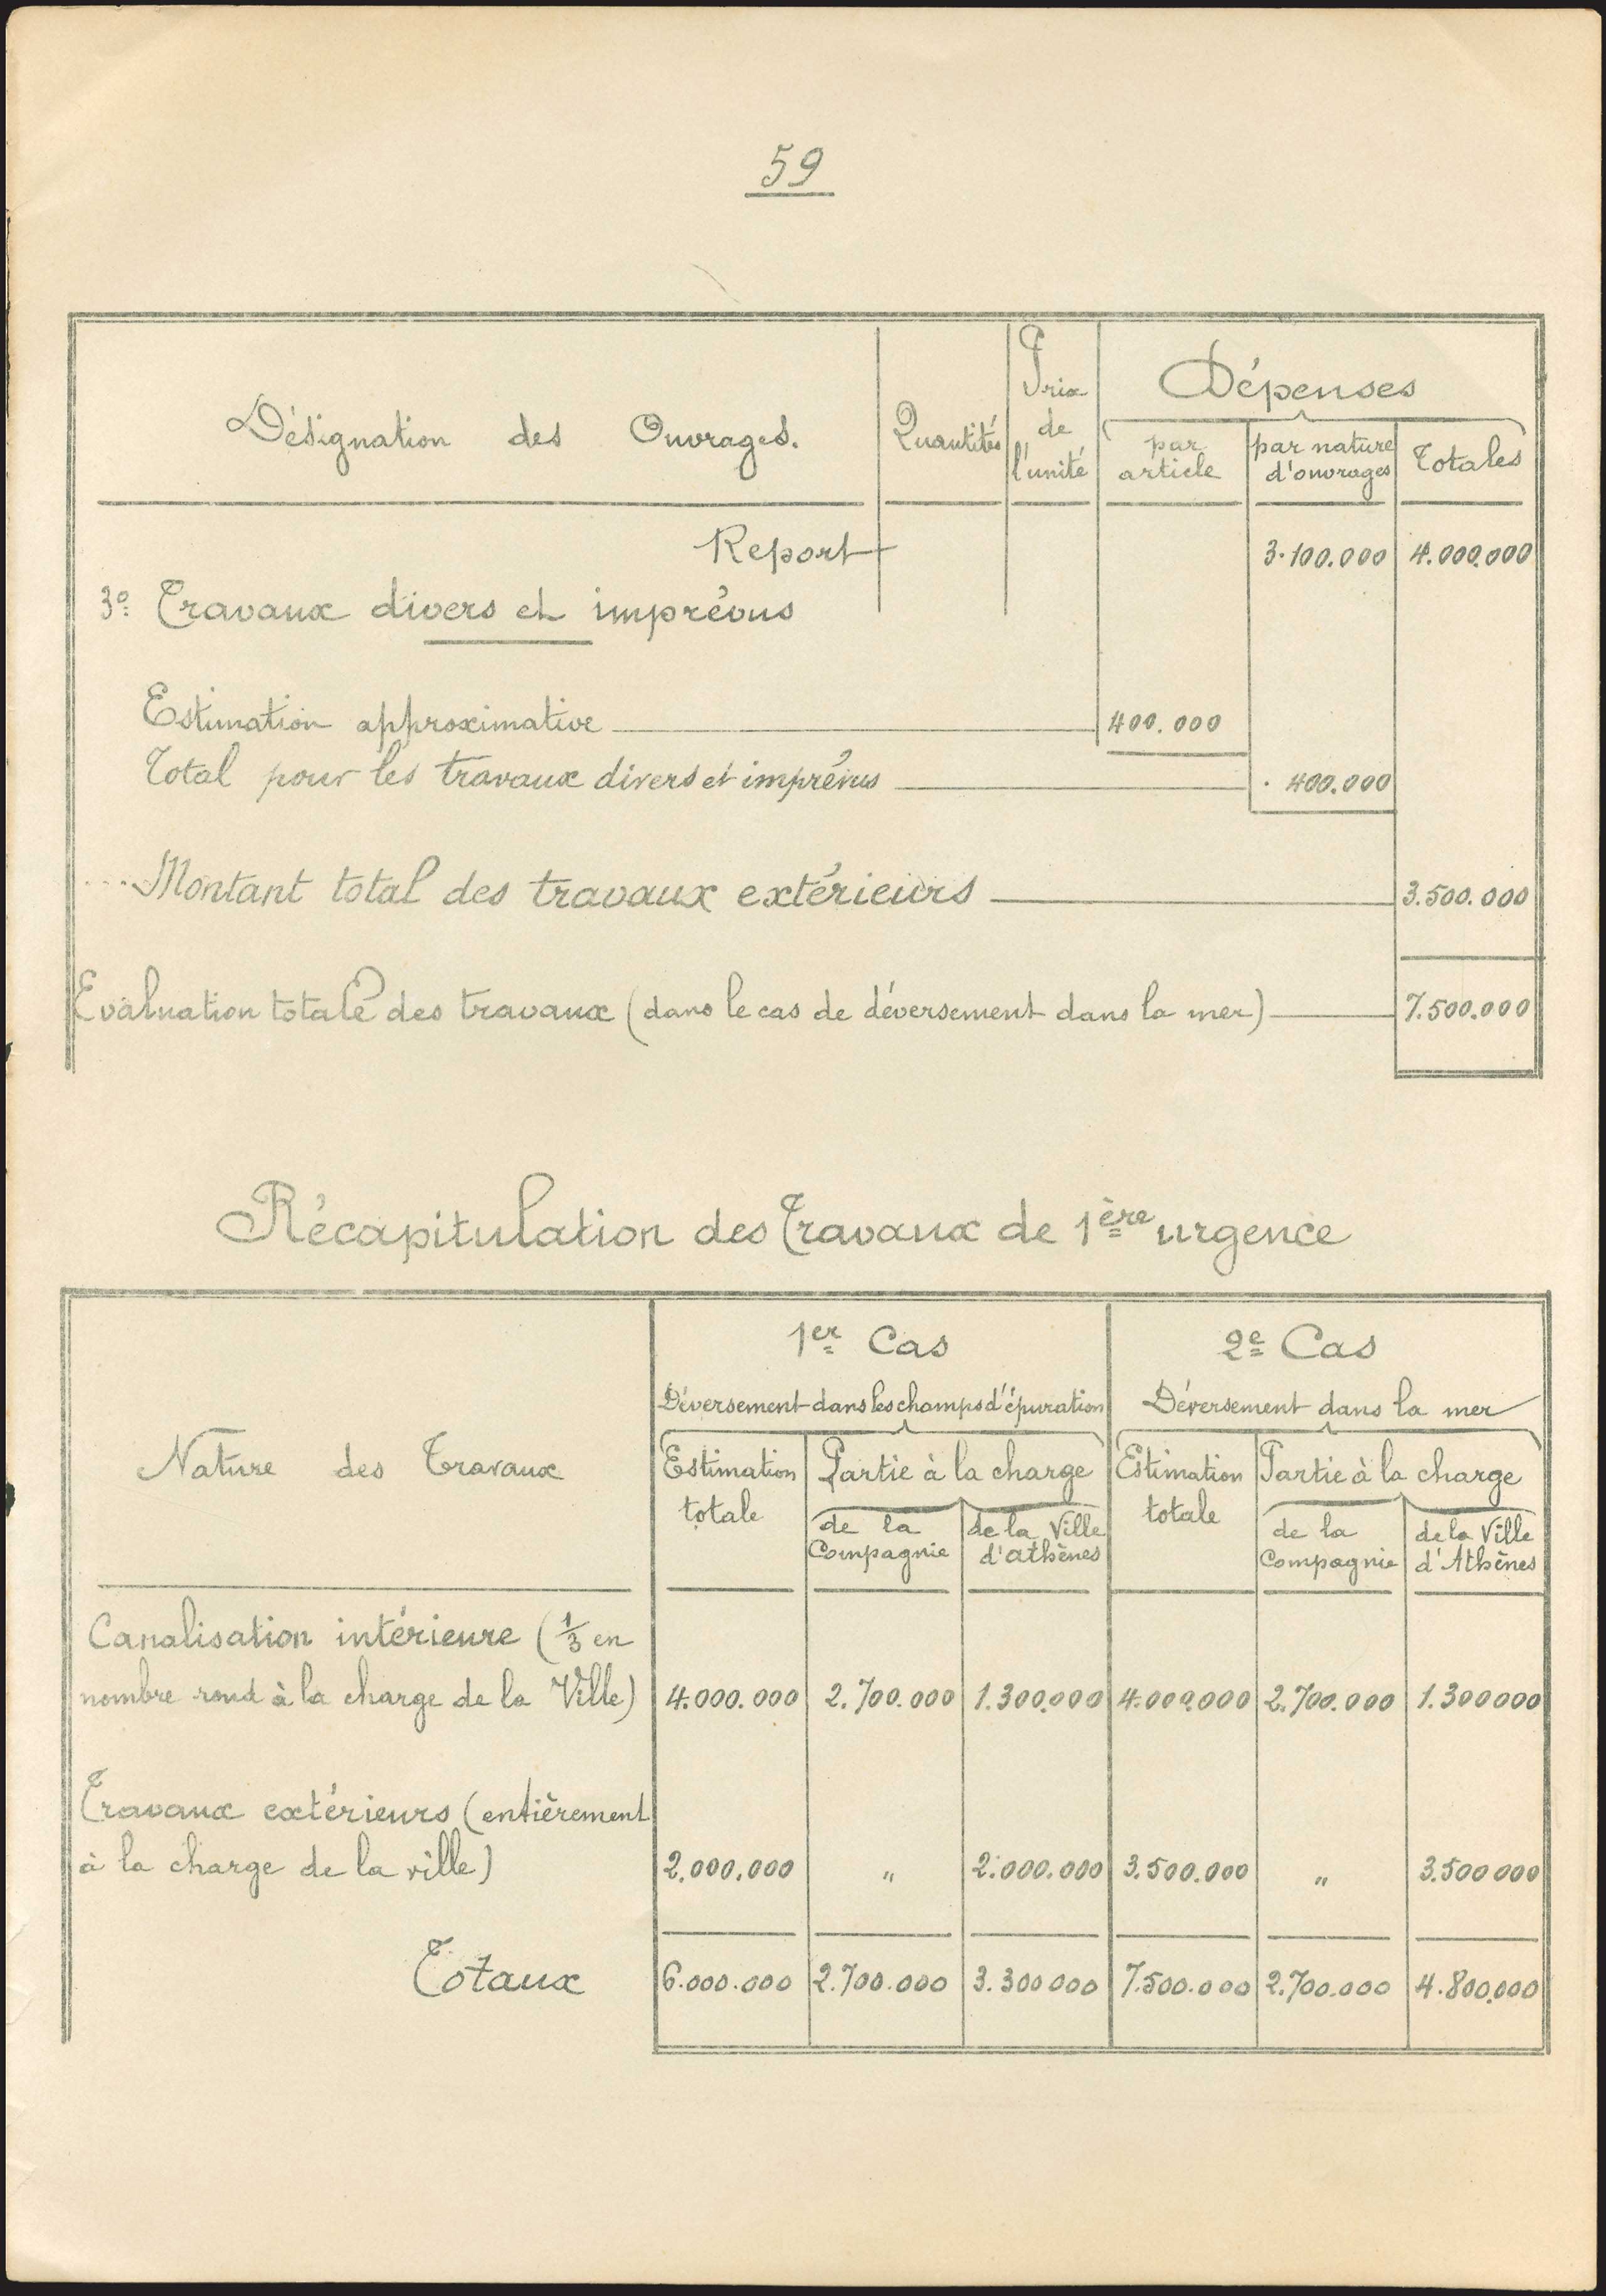 59
Désignation des Ouvrages.
Quantités
Prix
de
l'unité
Dépenses
par
article
par nature
d'ouvrages
Totales
Report
3.100.000 4.000.000
3º Travaux divers et imprévus
Estimation approximative 400.000
Total pour les travaux divers et imprévus 400.000
Montant total des travaux extérieurs 3.500.000
Evaluation totale des travaux (dans le cas de déversement dans la mer) 7.500.000
Récapitulation des Travaux de 1ère urgence
Nature des Travaux
1er Cas
Déversement dans les champs d'épuration
Estimation
totale
Partie à la charge
de la
Compagnie
de la Ville
d'athènes
2e Cas
Déversement dans la mer
Estimation
totale
Partie à la charge
de la
Compagnie
de la Ville
d'Athènes
Canalisation intérieure (1/3 en
nombre rond à la charge de la Ville) 4.000.000 2.700.000 1.300.000 4.000.000 2.700.000 1.300000
Travaux extérieurs (entièrement
à la charge de la ville) 2.000.000 " 2.000.000 3.500.000 " 3.500000
Totaux 6.000.000 2.700.000 3.300000 7.500.000 2.700.000 4.800.000